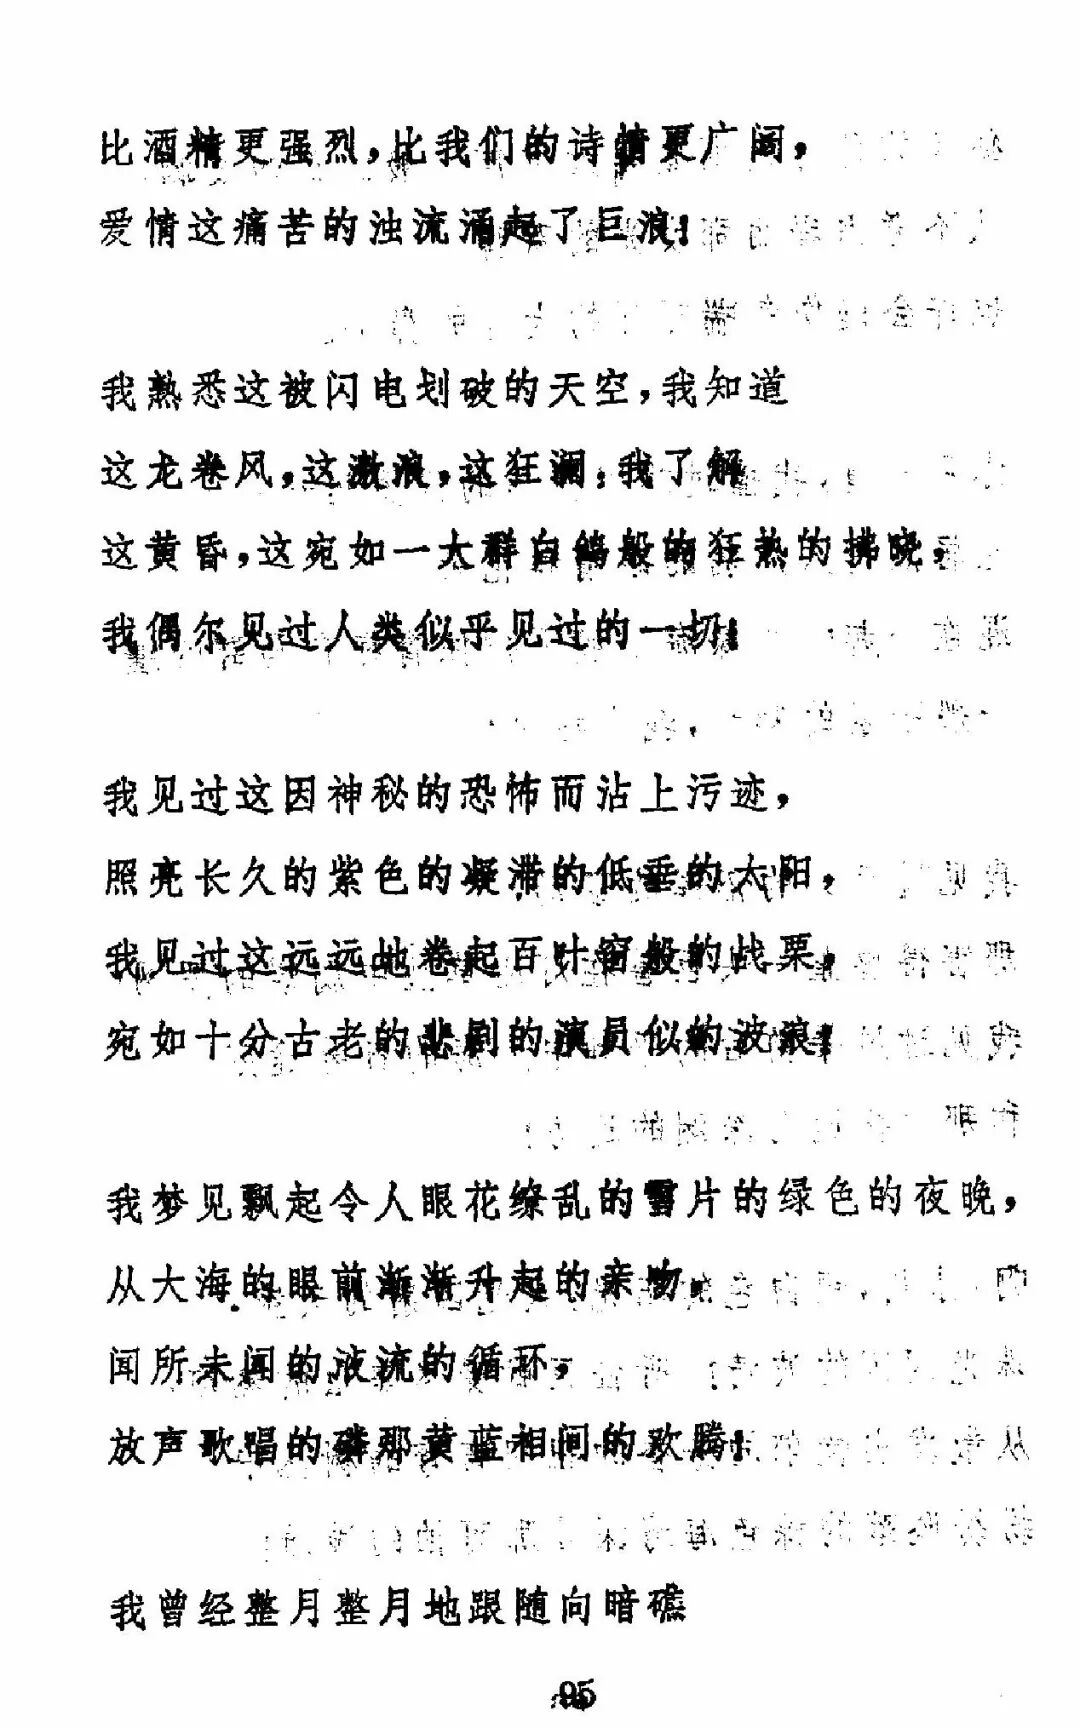 比酒精更强烈，比我们的诗情更广阔，
爱情这痛苦的浊流涌起了巨浪！
我熟悉这被闪电划破的天空，我知道
这龙卷风，这激浪，这狂澜；我了解
这黄昏，这宛如一大群白鸽般的狂热的拂晓，
我偶尔见过人类似乎见过的一切！
我见过这因神秘的恐怖而沾上污迹，
照亮长久的紫色的凝滞的低垂的太阳，
我见过这远远地卷起百叶窗般的战栗，
宛如十分古老的悲剧的演员似的波浪！
我梦见飘起令人眼花缭乱的雪片的绿色的夜晚，
从大海的眼前渐渐升起的亲吻，
闻所未闻的液流的循环，
放声歌唱的磷那黄蓝相间的欢腾！
我曾经整月整月地跟随向暗礁
95